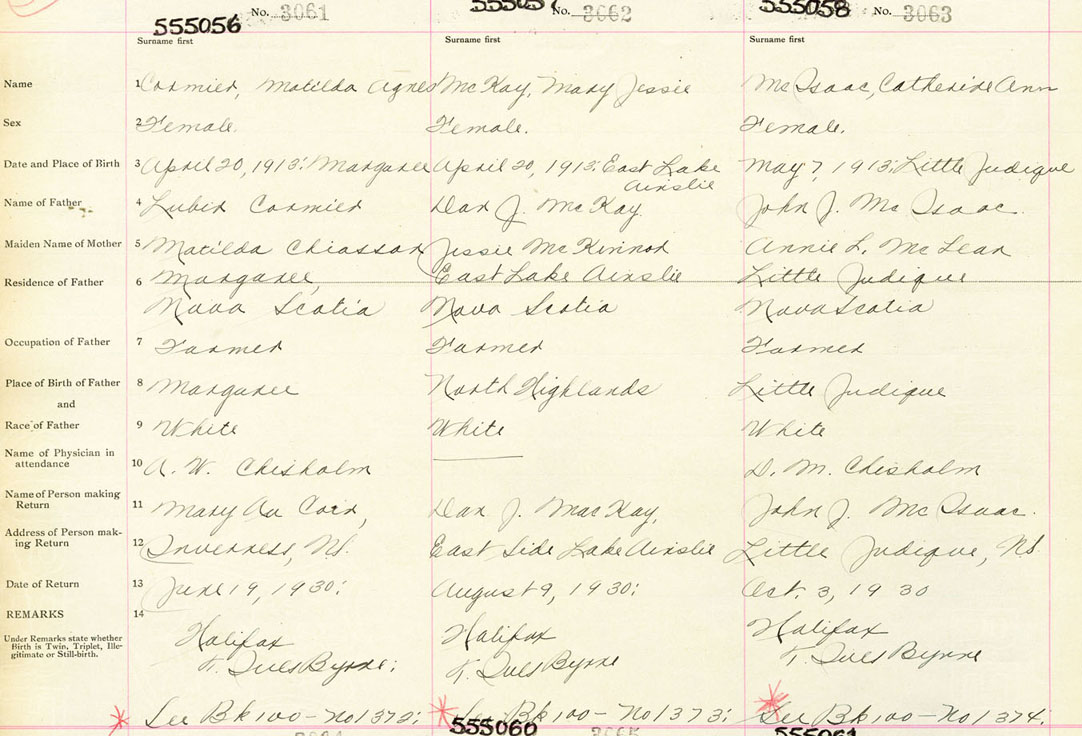 No. 3061
555056
Surname first
No. 3662
Surname first
555058
No. 3063
Surname first
Name
1 Cormier, Matilda Agnes
McKay, Mary Jessie
McIsaac, Catherine Ann
Sex
2 Female.
Female.
Female.
Date and Place of Birth
3 April 20, 1913: Margaree
April 20, 1913: East Lake
Ainslie
May 7, 1913: Little Judique
Name of Father
4 Lubin Cormier
Dan J. McKay
John J. McIsaac.
Maiden Name of Mother
5 Matilda Chiasson
Jessie McKinnon
Annie L. McLean
Residence of Father
6 Margaree,
Nova Scotia
East Lake Ainslie
Nova Scotia
Little Judique
Nova Scotia
Occupation of Father
7 Farmer
Farmer
Farmer
Place of Birth of Father
8 Margaree
North Highlands
Little Judique
and
Race of Father
9 White
White
White
Name of Physician in
attendance
10 A. W. Chisholm
D. M. Chisholm
Name of Person making
Return
11 Mary Au Coin,
Dan J. MacKay,
John J. McIsaac.
Address of Person mak-
ing Return
12 Inverness, NS.
East Side Lake Ainslie
Little Judique, NS
Date of Return
13 June 19, 1930:
August 9, 1930:
Oct. 3, 1930
REMARKS
14
Under Remarks state whether
Birth is Twin, Triplet, Ille-
gitimate or Still-birth.
Halifax
Byrne:
Halifax
Byrne
Halifax
Byrne
See Bk 100 - No 1372:
See Bk 100 - No 1373:
See Bk 100 - No 1374:
555060